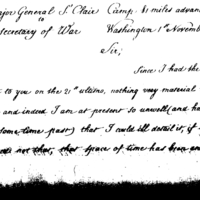 ajor General St. Clair Camp. 81 miles advan
to
secretary of War Washington 1st Novemb
Sir;
Since I had the
to you on the 21st ultimo, nothing very material
and indeed I am at present so unwell (and ha
some time past) that I could ill detail it, if
not, that space of time has been